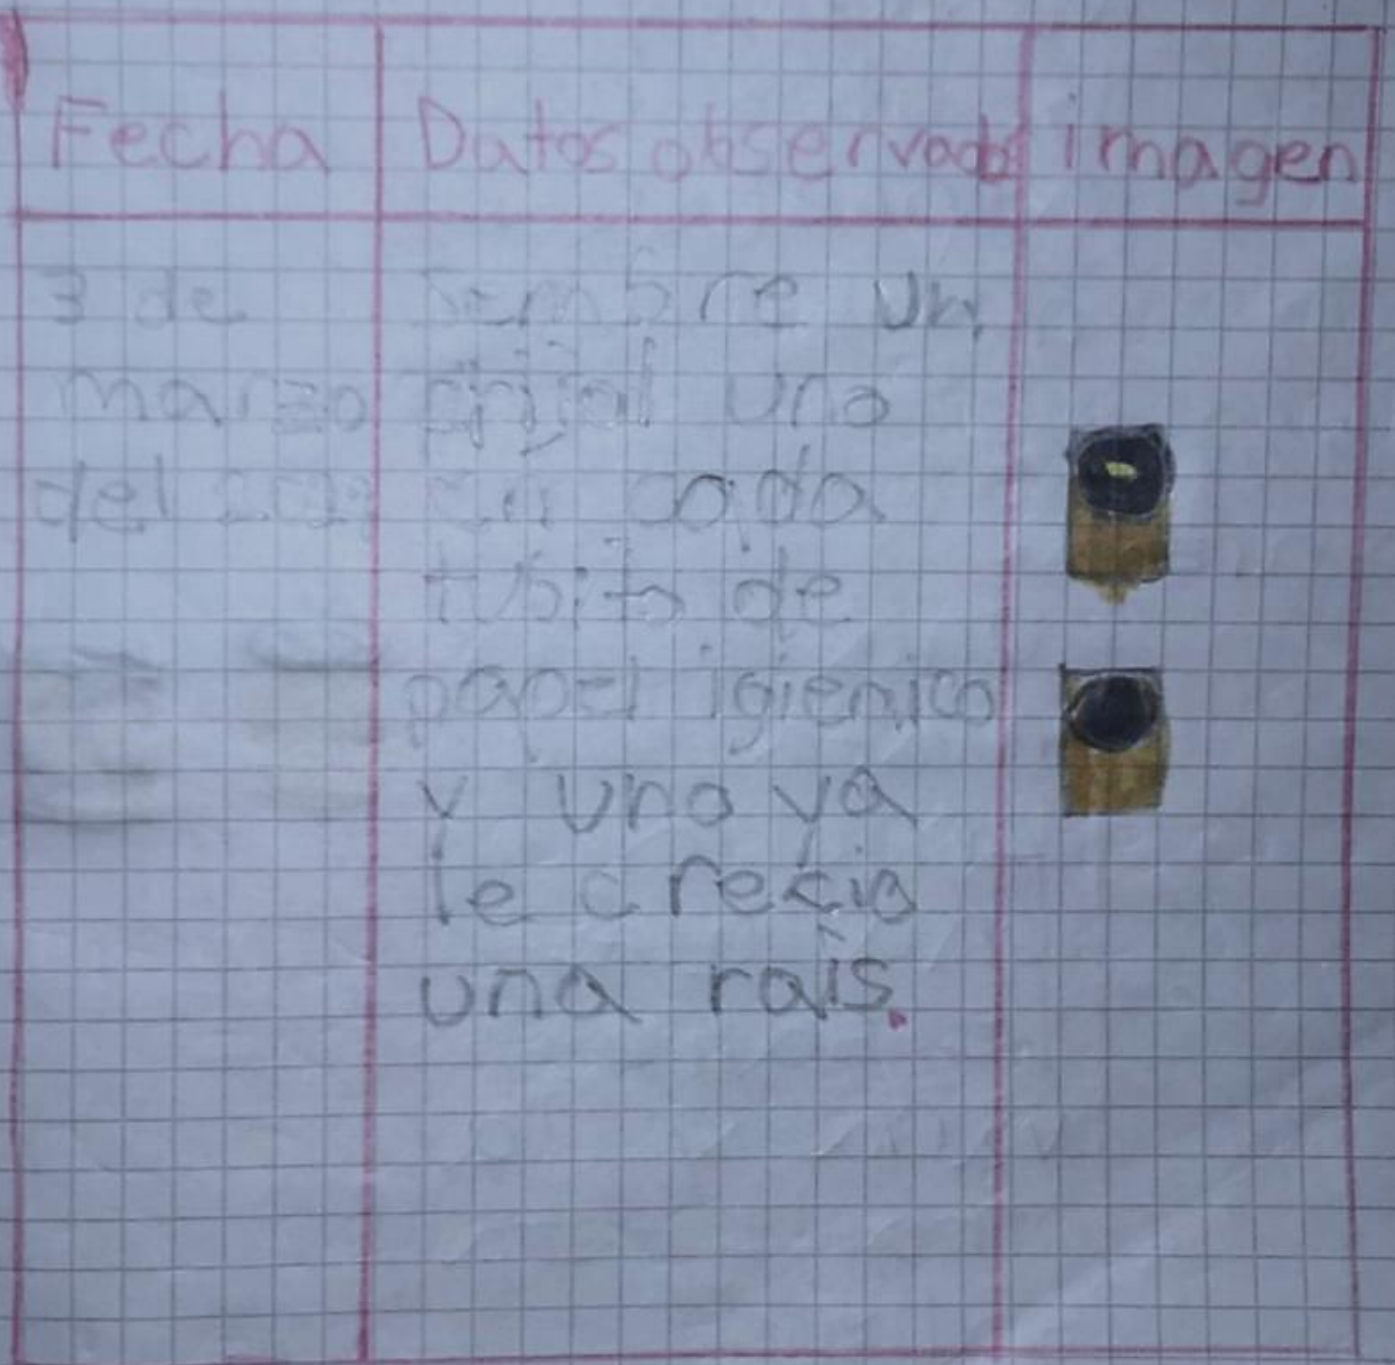 Fecha Datos observados imagen
3 de Sembre un
marzo frijol uno
del en cada
tubito de
papel igienico
y uno ya
le crecio
una raís.